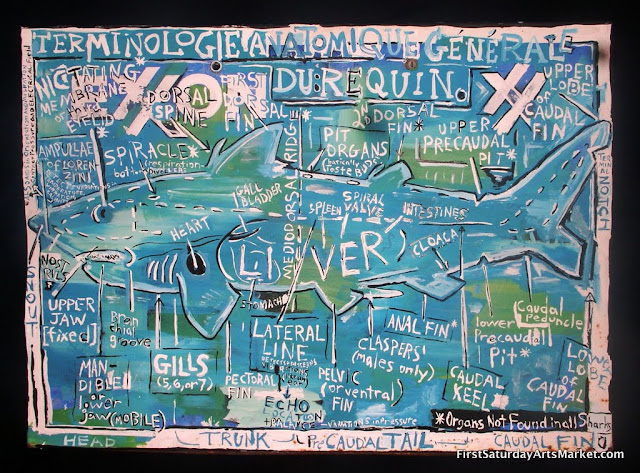 TERMINOLOGIE ANATOMIQUE GÉNÉRALE
DU REQUIN.
EXXON
NICTATING
MEMBRANE
or
EYELID
DORSAL
SPINE*
FIRST
DORSAL
FIN
2ND DORSAL
FIN*
UPPER
LOBE
of
CAUDAL
FIN
AMPULLAE
of LOREN-
ZINI
SPIRACLE*
(respiration-
PIT
ORGANS
(basically
Taste Buds)
UPPER
PRECAUDAL
PIT*
TERMINAL NOTCH
MEDIODORSAL RIDGE
GALL
BLADDER
SPLEEN
SPIRAL
VALVE
INTESTINES
HEART
LIVER
CLOACA
NOSTRILS
SNOUT
STOMACH
UPPER
JAW
[fixed]
Bran
chial
groove
LATERAL
LINE
ANAL FIN*
Caudal
Peduncle
lower
Precaudal
Pit*
MAN-
DIBLE
or
lower
Jaw (MOBILE)
GILLS
(5, 6, or 7)
PECTORAL
FIN
CLASPERS
(males only)
PELVIC
(or ventral)
FIN
CAUDAL
KEEL
LOWER
LOBE
of
CAUDAL
FIN
ECHO
LOCATION
+BALANCE
*Organs Not Found in all Sharks
HEAD
TRUNK
PreCAUDAL TAIL
CAUDAL FIN
FirstSaturdayArtsMarket.com